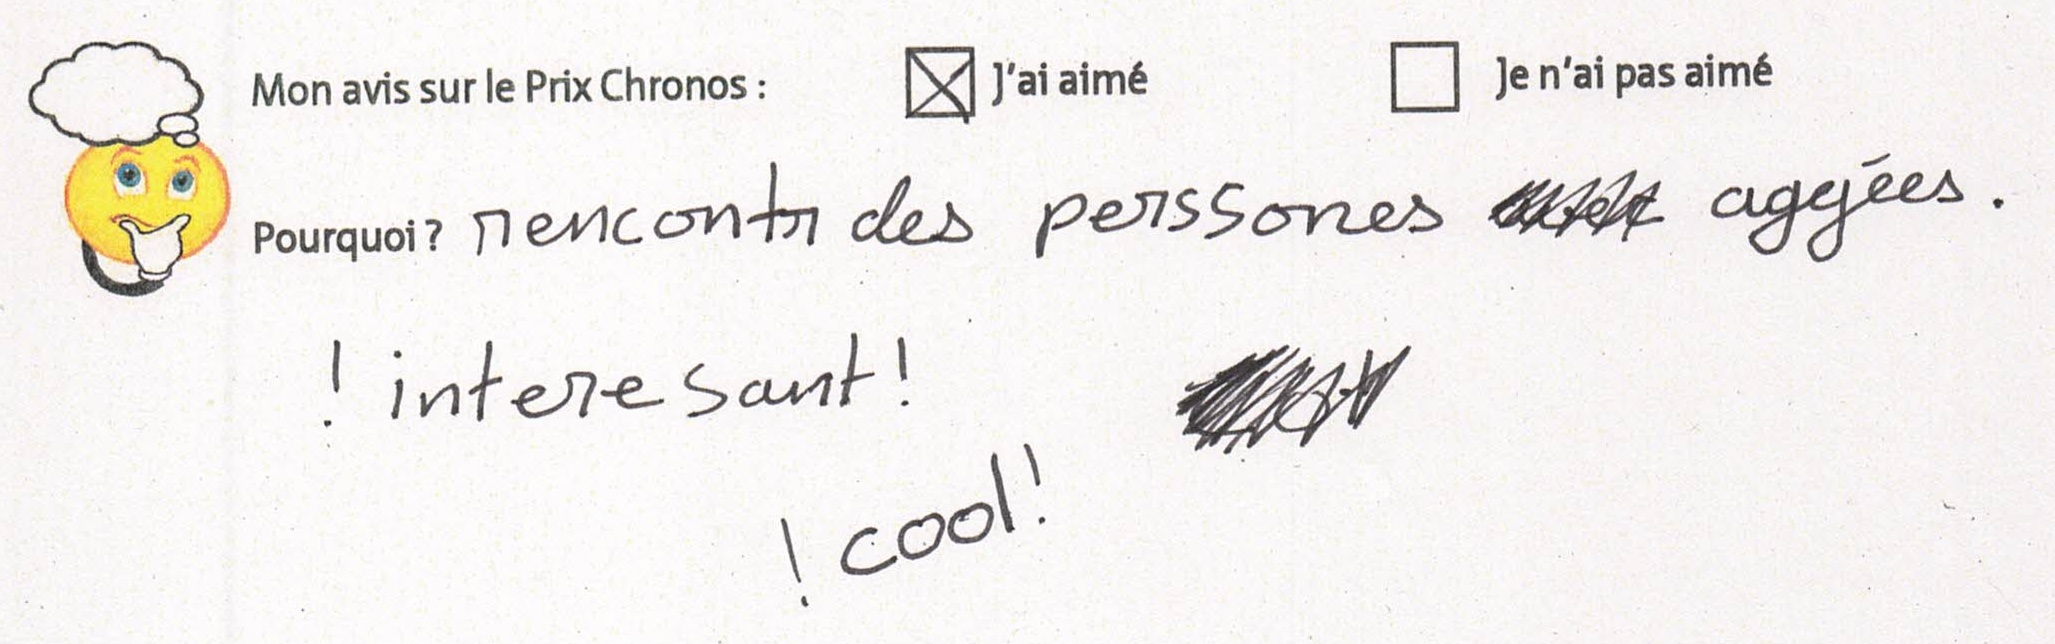 Mon avis sur le Prix Chronos : J'ai aimé Je n'ai pas aimé
Pourquoi ? rencontr des perssones agejées.
! interesant !
! cool !